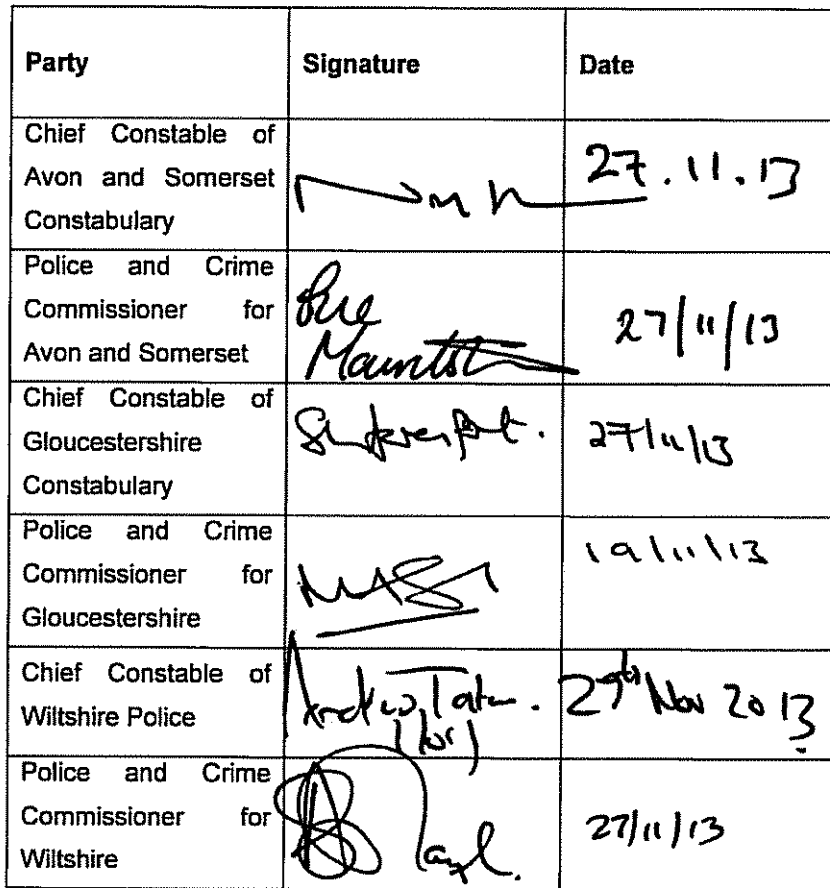 Party Signature Date
Chief Constable of
Avon and Somerset
Constabulary
27.11.13
Police and Crime
Commissioner for
Avon and Somerset
Sue
27/11/13
Chief Constable of
Gloucestershire
Constabulary
27/11/13
Police and Crime
Commissioner for
Gloucestershire
19/11/13
Chief Constable of
Wiltshire Police
Andrew Tatum.
(for)
Nov 2013
Police and Crime
Commissioner for
Wiltshire
27/11/13